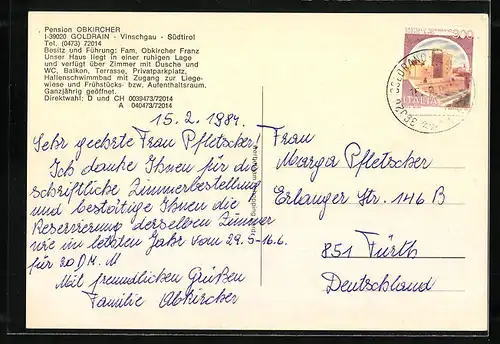 Pension OBKIRCHER
I-39020 GOLDRAIN - Vinschgau - Südtirol
Tel. (0473) 72014
Besitz und Führung: Fam. Obkircher Franz
Unser Haus liegt in einer ruhigen Lage
und verfügt über Zimmer mit Dusche und
WC, Balkon, Terrasse, Privatparkplatz,
Hallenschwimmbad mit Zugang zur Liege-
wiese und Frühstücks- bzw. Aufenthaltsraum.
Ganzjährig geöffnet.
Direktwahl: D und CH 0039473/72014
A 040473/72014
15.2.1984.
Sehr geehrte Frau Pfletscher!
Ich danke Ihnen für die
schriftliche Zimmerbestellung
und bestätige Ihnen die
Reservierung derselben Zimmer
wie im letzten Jahr vom 29.5-16.6.
für 20 DM.
Mit freundlichen Grüßen
Familie Obkircher
Frau
Marga Pfletscher
Erlanger Str. 146 B
851 Fürth
Deutschland
ITALIA
GOLDRAIN